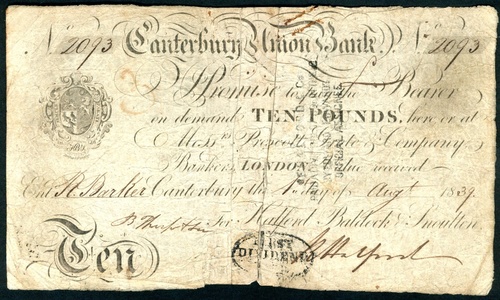 No. 2093 Canterbury Union Bank No. 2093
I Promise to pay the Bearer
on demand TEN POUNDS, here or at
Messrs. Prescott, Grote & Company
Bankers, LONDON Value received
Canterbury the 1st day of Augt 1839
For Halford Baldock & Snoulten
Ten
FIRST
DIVIDEND
G Halford